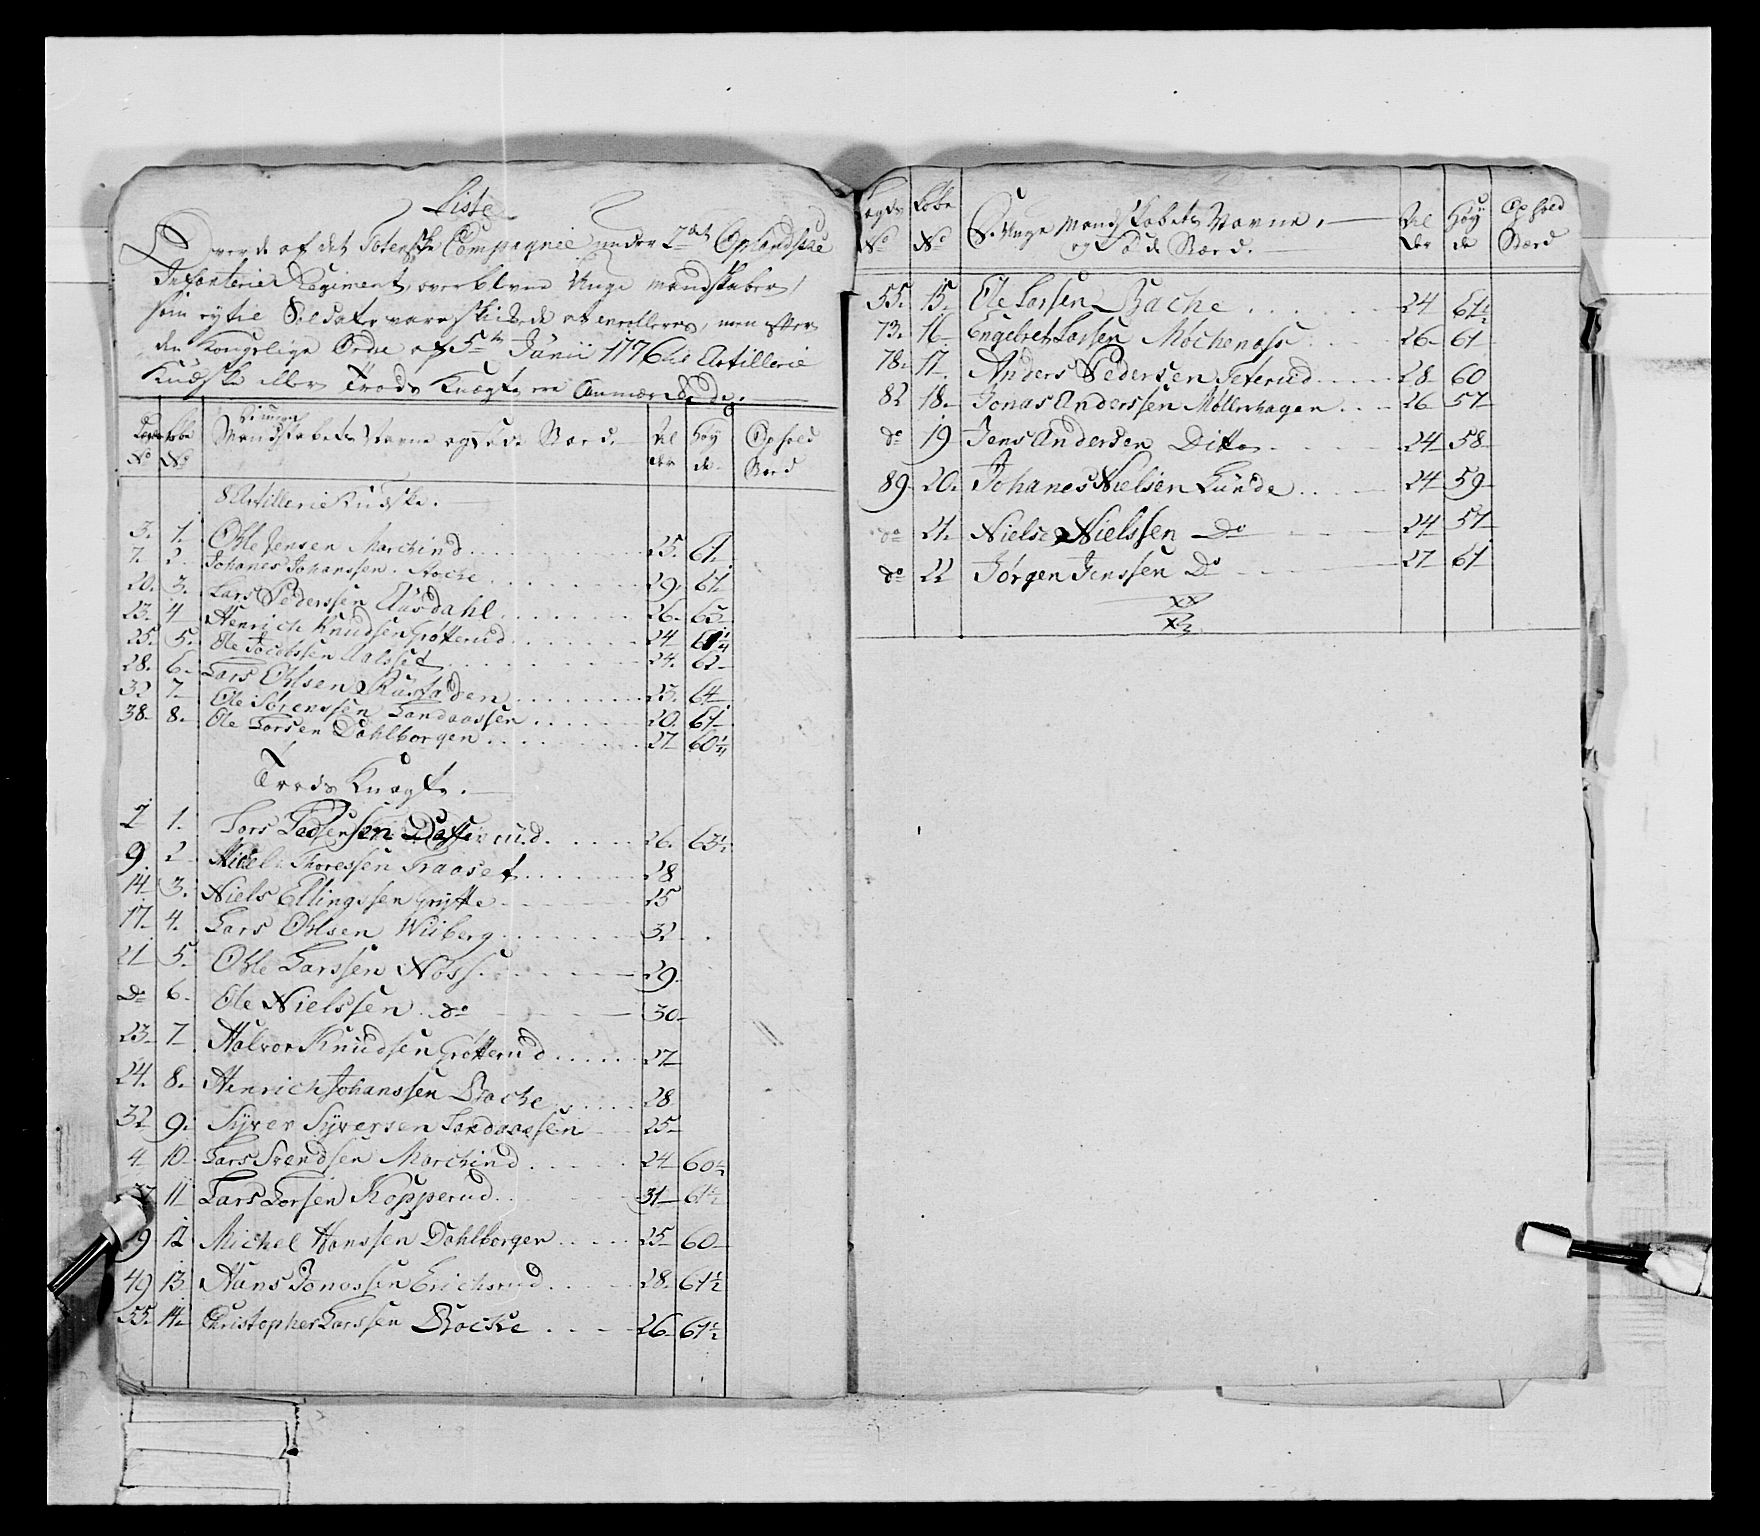 Liste
Over de af det Totenske Compagnie under 2det Oplandske
Infanterie Regiment, overblevne Unge mandskaber,
som ey til Soldater vare skikkede at enrolleres, men efter
den Kongelige Ordre af 5te Junii 1776 til Artillerie
Kudske eller Trods Knægte ere Annærede.
Unge
Mandskabets Navne og føde Stæd
Lægds No
Løbe No
Al der
Høy de
Ophold Stæd
Artillerie Kudske.
3. 1. Ohle Jensen Marchind 25. 61.
7. 2. Johanes Johanssen 29. 61.
20. 3. Lars Pederssen Aasdahl 26. 63
23. 4 Henrich Knudsen Grøtterud 24 61 1/4
25. 5. Ole Jacobssen Aalset 24. 62
28. 6. Lars Ohlsen Rustaden 23. 64
32 7. Ole Sørenssen Landaassen 20. 61
38. 8. Ole Larsen Dahlborgen 27 60 1/4
Trods Knægte.
2 1. Lars 26. 63 1/2
9. 2 Nicel Thoressen Fraaset 28
14 3. Niels Ellingssen Grytte 25
17. 4. Lars Ohlsen Wiiberg 32
21 5. Ohle Larssen Noss 29
Do 6. Ole Nielssen do 30
23 7 Halvor Knudsen Grøtterud 27
24. 8. Henrich Johanssen Bache 28
32 9. Syver Syversen Landaassen 25
4 10 Lars Svendsen Marchind 24 60 1/2
11 Lars Larsen Kopperud 31 61 1/2
9 12 Michel Hanssen Dahlborgen 25 60
49 13. Hans Jonassen Erichsrud 28. 61 1/2
55. 14. Christopher Larssen Bache 26 61 1/2
Lægds No
Løbe No
Unge Mandskabets Navne
og Føde Stæd.
Al der
Høy de
Ophold Stæd
55. 15. Ole Larsen Bache 24 61 1/2
73. 16 Engebret Larsen Mochenass 26 61
78. 17. Anders Pedersen Teterud 28 60
82 18. Jonas Anderssen Møllerhagen 26 57
do 19 Jens Andersen Ditto 24 58
89. 20. Johanes Nielsen Lunde 24 59
do 21. Niels Nielssen Do 24 57
do 22 Jørgen Jenssen Do 27 61